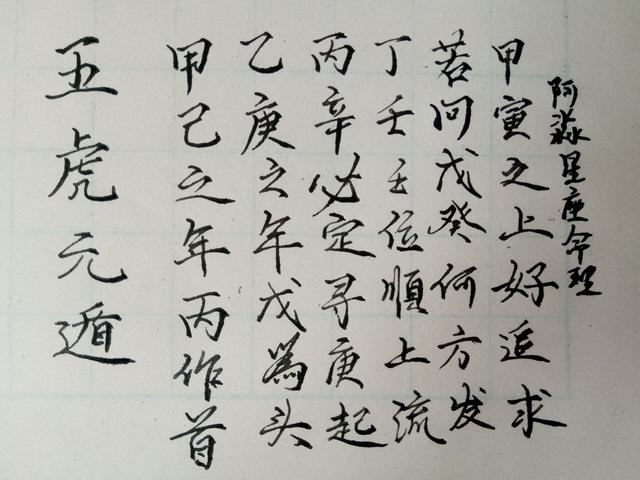 五虎元遁
甲己之年丙作首
乙庚之年戊為头
丙辛必定寻庚起
丁壬壬位順上流
若问戊癸何方发
甲寅之上好追求
阿淼星座命理